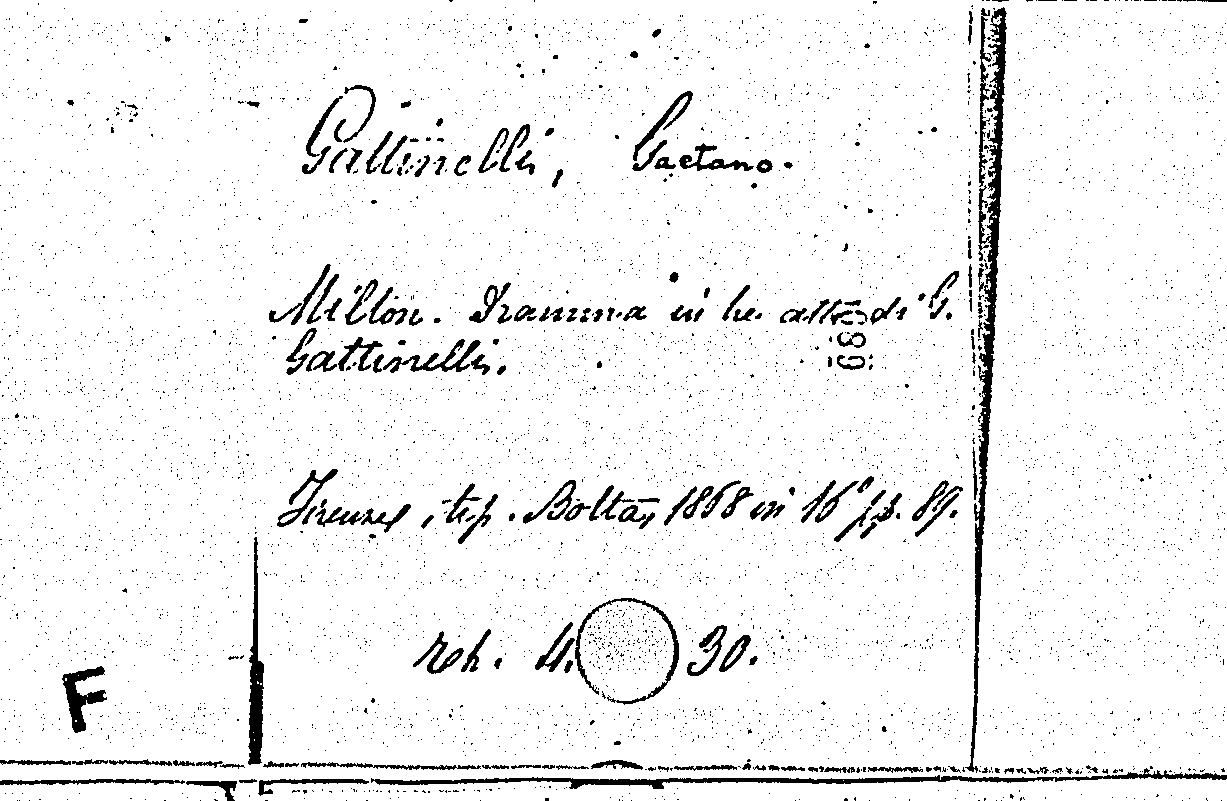 Gattinelli, Gaetano.
Milton. Dramma in tre atti di G.
Gattinelli.
Firenze, tip. Botta, 1868 in 16° pp. 89.
4. 30.
F